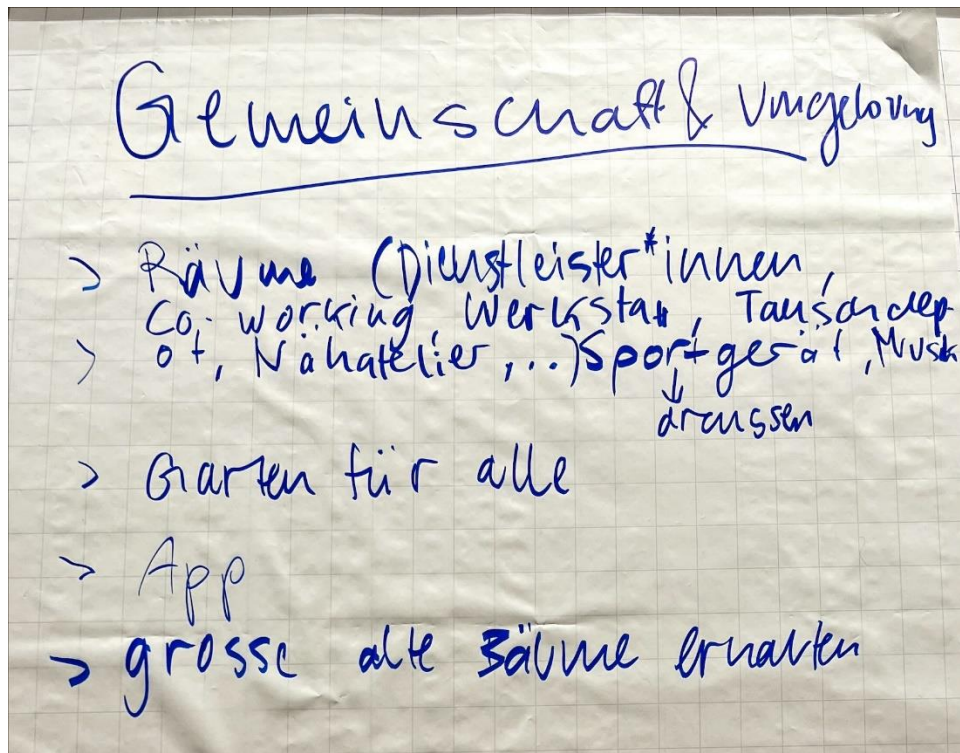 Gemeinschaft & Umgebung
> Räume (Dienstleister*innen,
Co-working, Werkstatt, Tauschdep-
> ot, Nähatelier, ...) Sportgerät, Musik
↓
draussen
> Garten für alle
> App
> grosse alte Bäume erhalten